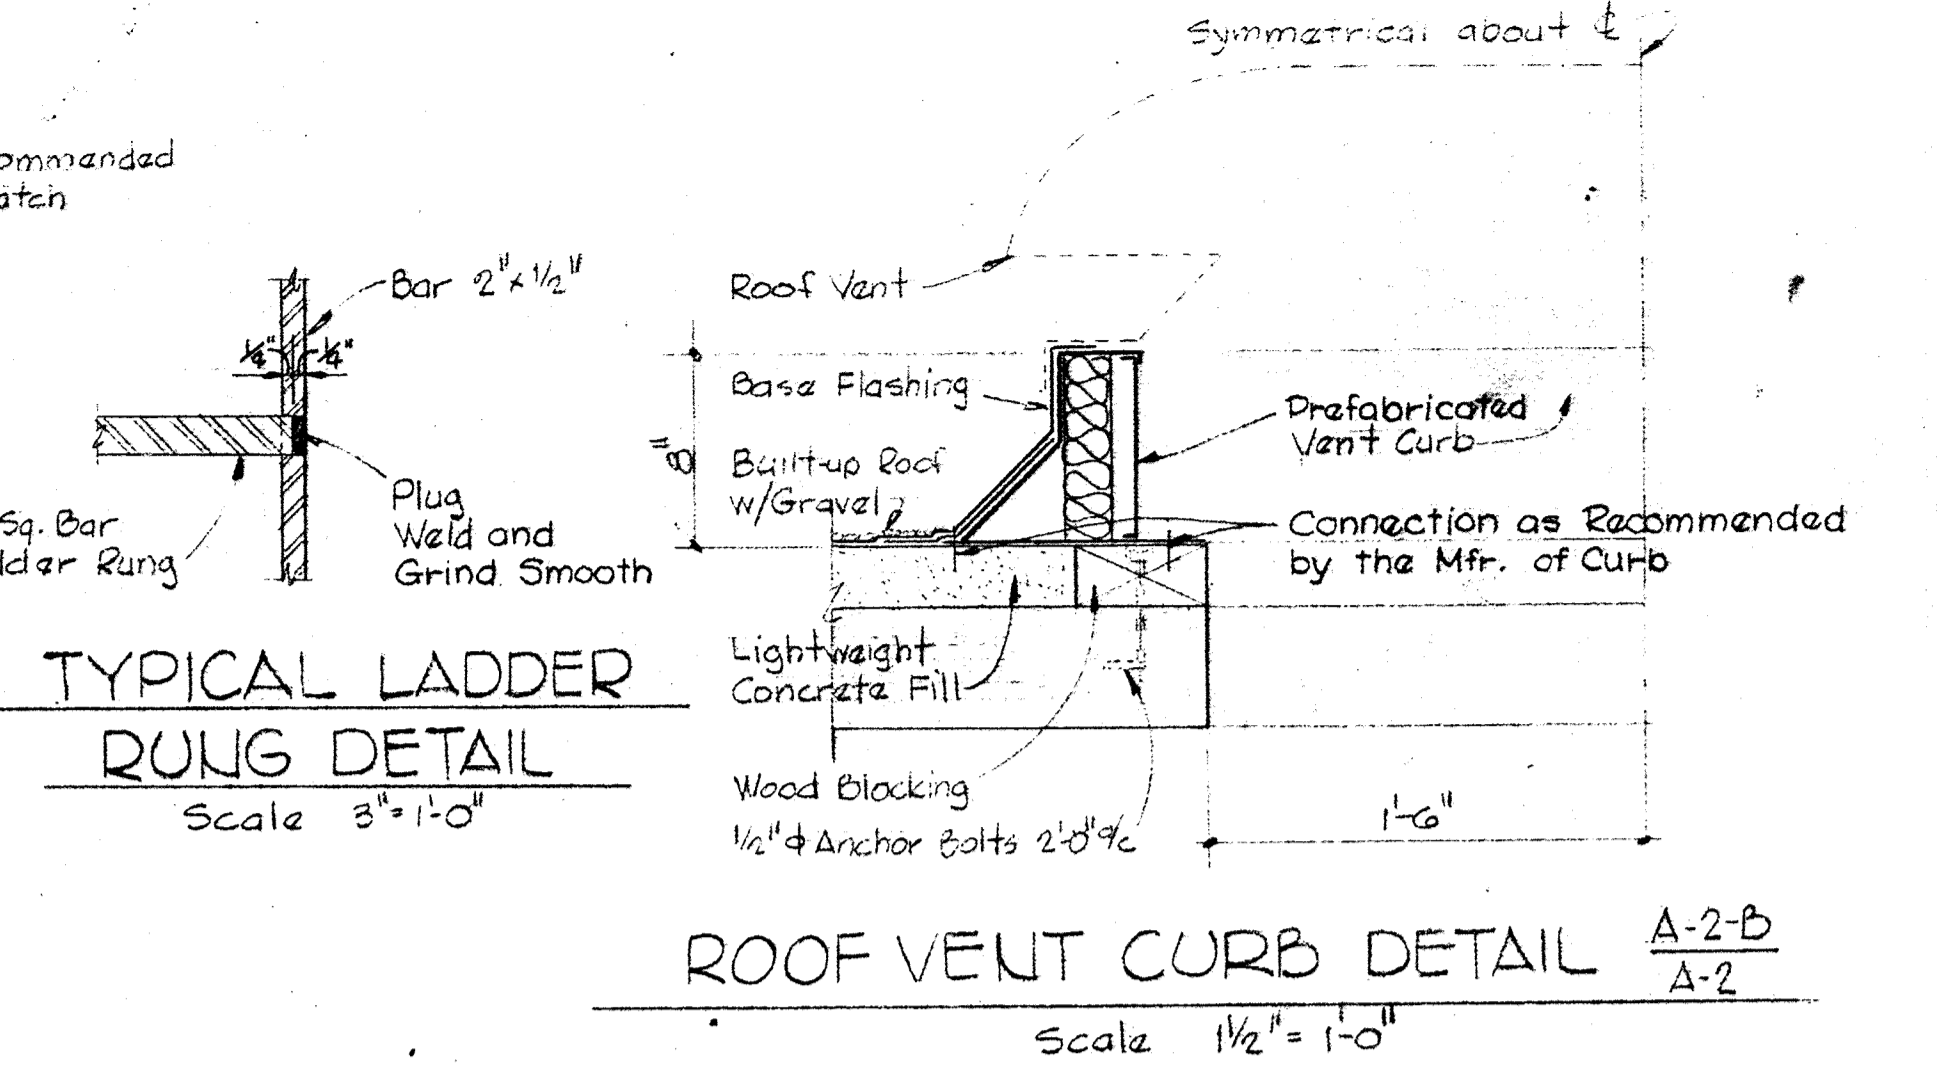 ommended
atch
Bar 2" x 1/2"
1/4" 1/4"
Sq. Bar
lder Rung
Plug
Weld and
Grind Smooth
TYPICAL LADDER
RUNG DETAIL
Scale 3" = 1'-0"
Symmetrical about ℄
Roof Vent
8"
Base Flashing
Built-up Roof
w/Gravel
Prefabricated
Vent Curb
Connection as Recommended
by the Mfr. of Curb
Lightweight
Concrete Fill
Wood Blocking
1/2" ϕ Anchor Bolts 2'-0" o/c
1'-6"
ROOF VENT CURB DETAIL
A-2-B
A-2
Scale 1 1/2" = 1'-0"